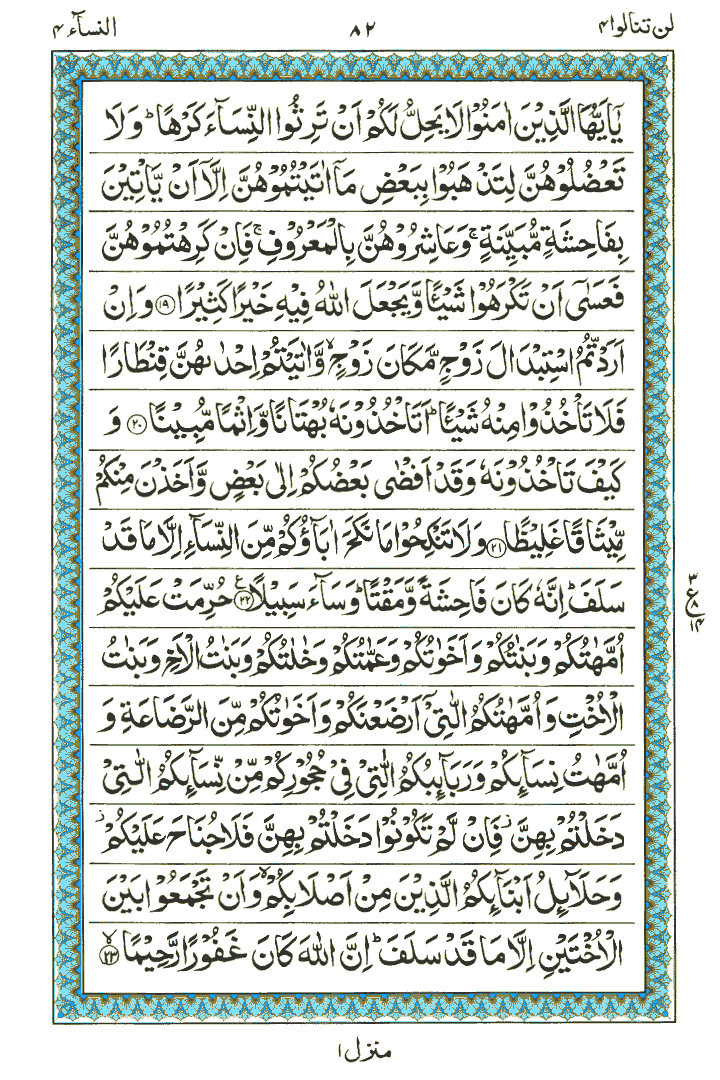 لن تنالوا ۴ ۸۲ النسآء ۴
يٰۤاَيُّهَا الَّذِيْنَ اٰمَنُوْا لَا يَحِلُّ لَكُمْ اَنْ تَرِثُوا النِّسَآءَ كَرْهًا ؕ وَ لَا
تَعْضُلُوْهُنَّ لِتَذْهَبُوْا بِبَعْضِ مَاۤ اٰتَيْتُمُوْهُنَّ اِلَّاۤ اَنْ يَّاْتِيْنَ
بِفَاحِشَةٍ مُّبَيِّنَةٍ ۚ وَ عَاشِرُوْهُنَّ بِالْمَعْرُوْفِ ۚ فَاِنْ كَرِهْتُمُوْهُنَّ
فَعَسٰۤى اَنْ تَكْرَهُوْا شَيْـًٔا وَّ يَجْعَلَ اللّٰهُ فِيْهِ خَيْرًا كَثِيْرًا ۝۱۹ وَ اِنْ
اَرَدْتُّمُ اسْتِبْدَالَ زَوْجٍ مَّكَانَ زَوْجٍ ۙ وَّ اٰتَيْتُمْ اِحْدٰىهُنَّ قِنْطَارًا
فَلَا تَاْخُذُوْا مِنْهُ شَيْـًٔا ؕ اَتَاْخُذُوْنَهٗ بُهْتَانًا وَّ اِثْمًا مُّبِيْنًا ۝۲۰ وَ
كَيْفَ تَاْخُذُوْنَهٗ وَ قَدْ اَفْضٰى بَعْضُكُمْ اِلٰى بَعْضٍ وَّ اَخَذْنَ مِنْكُمْ
مِّيْثَاقًا غَلِيْظًا ۝۲۱ وَ لَا تَنْكِحُوْا مَا نَكَحَ اٰبَآؤُكُمْ مِّنَ النِّسَآءِ اِلَّا مَا قَدْ
سَلَفَ ؕ اِنَّهٗ كَانَ فَاحِشَةً وَّ مَقْتًا ؕ وَ سَآءَ سَبِيْلًا ۝۲۲ ع حُرِّمَتْ عَلَيْكُمْ
۳ ع ۸ ۱۴
اُمَّهٰتُكُمْ وَ بَنٰتُكُمْ وَ اَخَوٰتُكُمْ وَ عَمّٰتُكُمْ وَ خٰلٰتُكُمْ وَ بَنٰتُ الْاَخِ وَ بَنٰتُ
الْاُخْتِ وَ اُمَّهٰتُكُمُ الّٰتِيْۤ اَرْضَعْنَكُمْ وَ اَخَوٰتُكُمْ مِّنَ الرَّضَاعَةِ وَ
اُمَّهٰتُ نِسَآىِٕكُمْ وَ رَبَآىِٕبُكُمُ الّٰتِيْ فِيْ حُجُوْرِكُمْ مِّنْ نِّسَآىِٕكُمُ الّٰتِيْ
دَخَلْتُمْ بِهِنَّ ؗ فَاِنْ لَّمْ تَكُوْنُوْا دَخَلْتُمْ بِهِنَّ فَلَا جُنَاحَ عَلَيْكُمْ ؗ
وَ حَلَآىِٕلُ اَبْنَآىِٕكُمُ الَّذِيْنَ مِنْ اَصْلَابِكُمْ ۙ وَ اَنْ تَجْمَعُوْا بَيْنَ
الْاُخْتَيْنِ اِلَّا مَا قَدْ سَلَفَ ؕ اِنَّ اللّٰهَ كَانَ غَفُوْرًا رَّحِيْمًا ۙ۝۲۳
منزل ۱